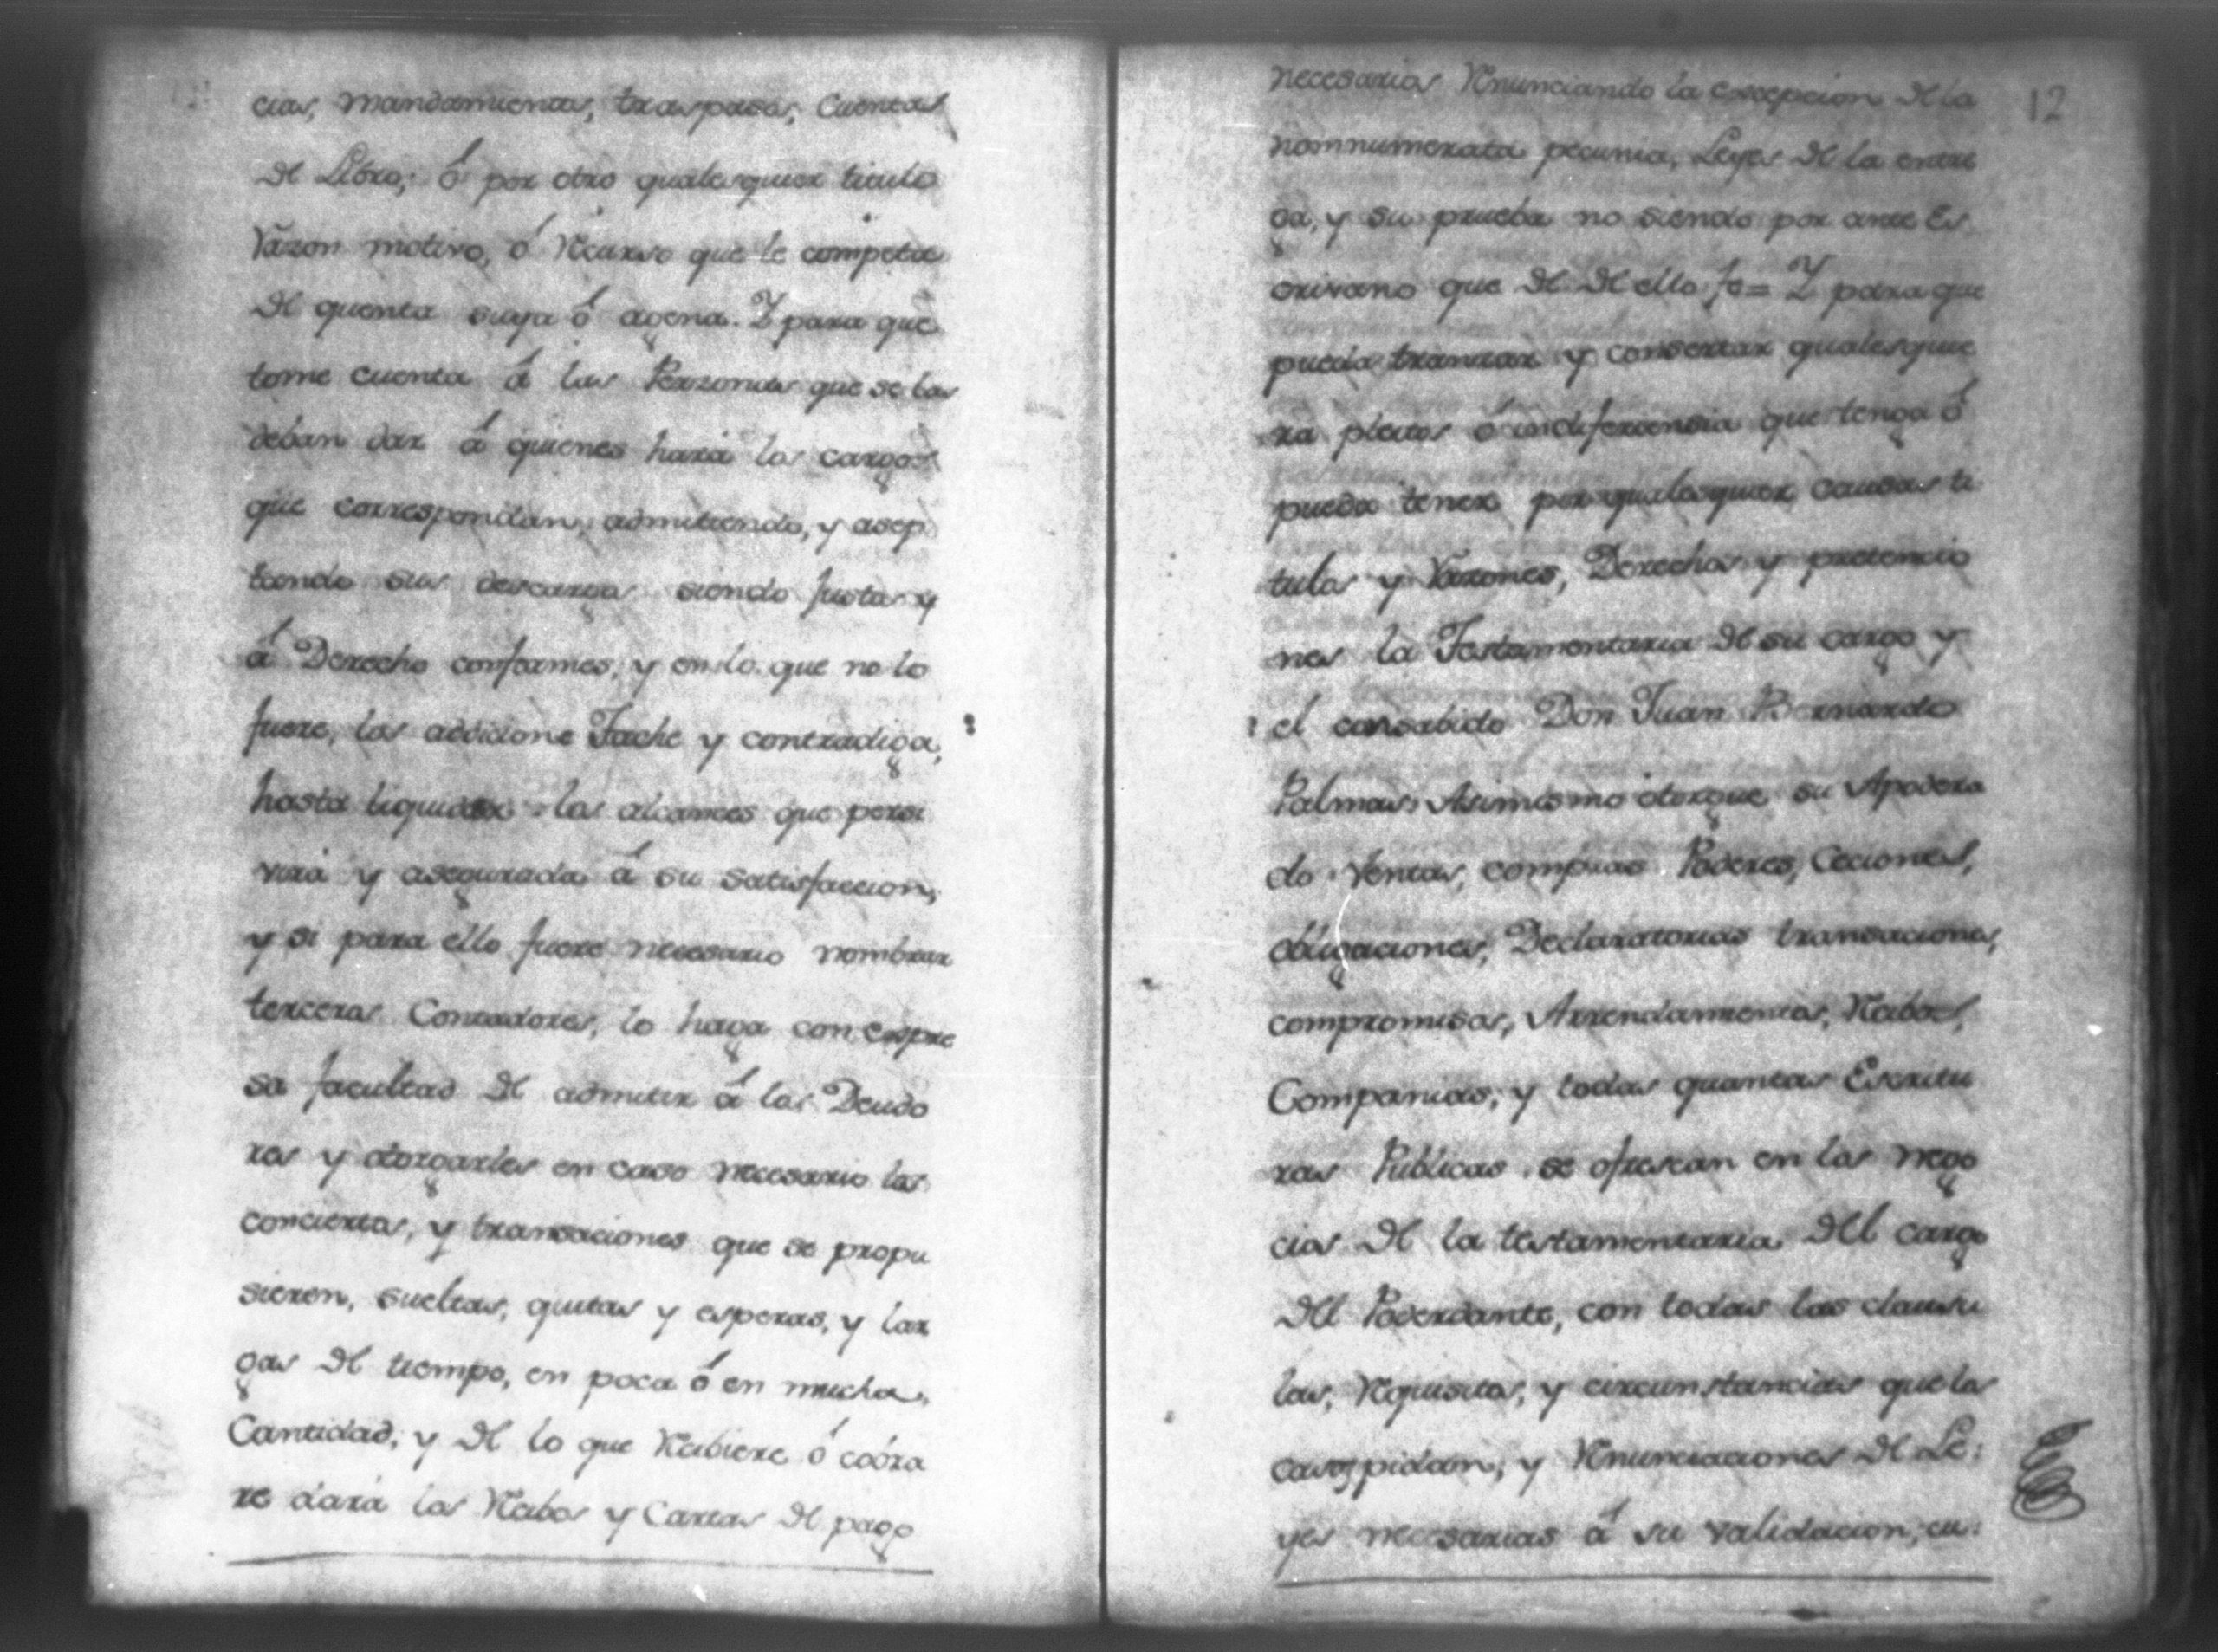 cias, mandamientos, traspasos, Cuentas
de Libro; ó por otro qualesquier titulo
Razon motivo, ó Recurso que le competa
de quenta suya ó agena. Y para que
tome cuenta á las Perzonas que se las
deban dar á quienes hará los cargos
que correspondan, admitiendo, y asep
tando sus descargos siendo justos y
á Derecho conformes, y en lo que no lo
fuere, los addicione Tache y contradiga,
hasta liquidar los alcances que persi
virá y asegurada á su satisfaccion,
y si para ello fuere necesario nombrar
terceros Contadores, lo haga con expre
sa facultad de admitir á los Deudo
res y otorgarles en caso necesario los
conciertos, y transaciones que se propu
sieren, sueltas, quitas y esperas, y lar
gas de tiempo, en poca ó en mucha
Cantidad, y de lo que Recibiere ó cobra
re dará los Recibos y Cartas de pago
12
necesarios Renunciando la excepcion de la
nomnumerata pecunia, Leyes de la entre
ga, y su prueba no siendo por ante Es
crivano que de de ello fe = Y para que
pueda tranzar y consertar qualesquie
ra pleitos ó indiferiensia que tenga ó
pueda tener por qualesquier causas ti
tulos y Razones, Derechos y pretencio
nes la Testamentaria de su cargo y
el consabido Don Juan Bernardo
Palmas. Asimismo otorgue su Apodera
do Ventas, compras Poderes, Ceciones,
obligaciones, Declaratorias transaciones,
compromisos, Arrendamientos, Recibos,
Companias, y todas quantas Escritu
ras Publicas se ofrescan en los nego
cios de la testamentaria del cargo
del Poderdante, con todas las clausu
las, Requisitos, y circunstancias que los
casos pidan, y Renunciaciones de Le:
yes necesarias á su validacion, cu: